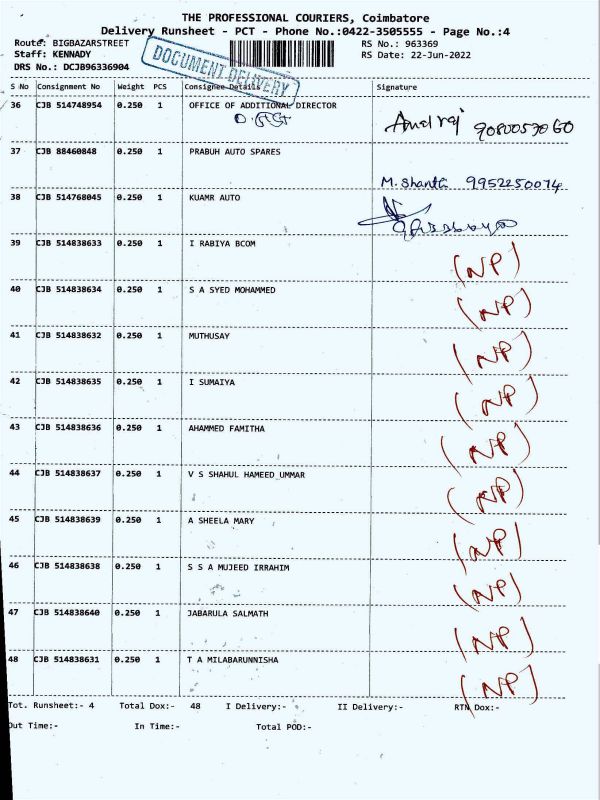 THE PROFESSIONAL COURIERS, Coimbatore
Delivery Runsheet - PCT - Phone No.:0422-3505555 - Page No.:4
Route: BIGBAZARSTREET
Staff: KENNADY
DRS No.: DCJB96336904
DOCUMENT DELIVERY
RS No.: 963369
RS Date: 22-Jun-2022
S No Consignment No Weight PCS Consignee Details Signature
36 CJB 514748954 0.250 1 OFFICE OF ADDITIONAL DIRECTOR
37 CJB 88460848 0.250 1 PRABUH AUTO SPARES
M. Shanthi 9952250074
38 CJB 514768045 0.250 1 KUAMR AUTO
39 CJB 514838633 0.250 1 I RABIYA BCOM (NP)
40 CJB 514838634 0.250 1 S A SYED MOHAMMED (NP)
41 CJB 514838632 0.250 1 MUTHUSAY (NP)
42 CJB 514838635 0.250 1 I SUMAIYA (NP)
43 CJB 514838636 0.250 1 AHAMMED FAMITHA (NP)
44 CJB 514838637 0.250 1 V S SHAHUL HAMEED UMMAR (NP)
45 CJB 514838639 0.250 1 A SHEELA MARY (NP)
46 CJB 514838638 0.250 1 S S A MUJEED IRRAHIM (NP)
47 CJB 514838640 0.250 1 JABARULA SALMATH (NP)
48 CJB 514838631 0.250 1 T A MILABARUNNISHA (NP)
Tot. Runsheet:- 4 Total Dox:- 48 I Delivery:- II Delivery:- RTN Dox:-
Out Time:- In Time:- Total POD:-